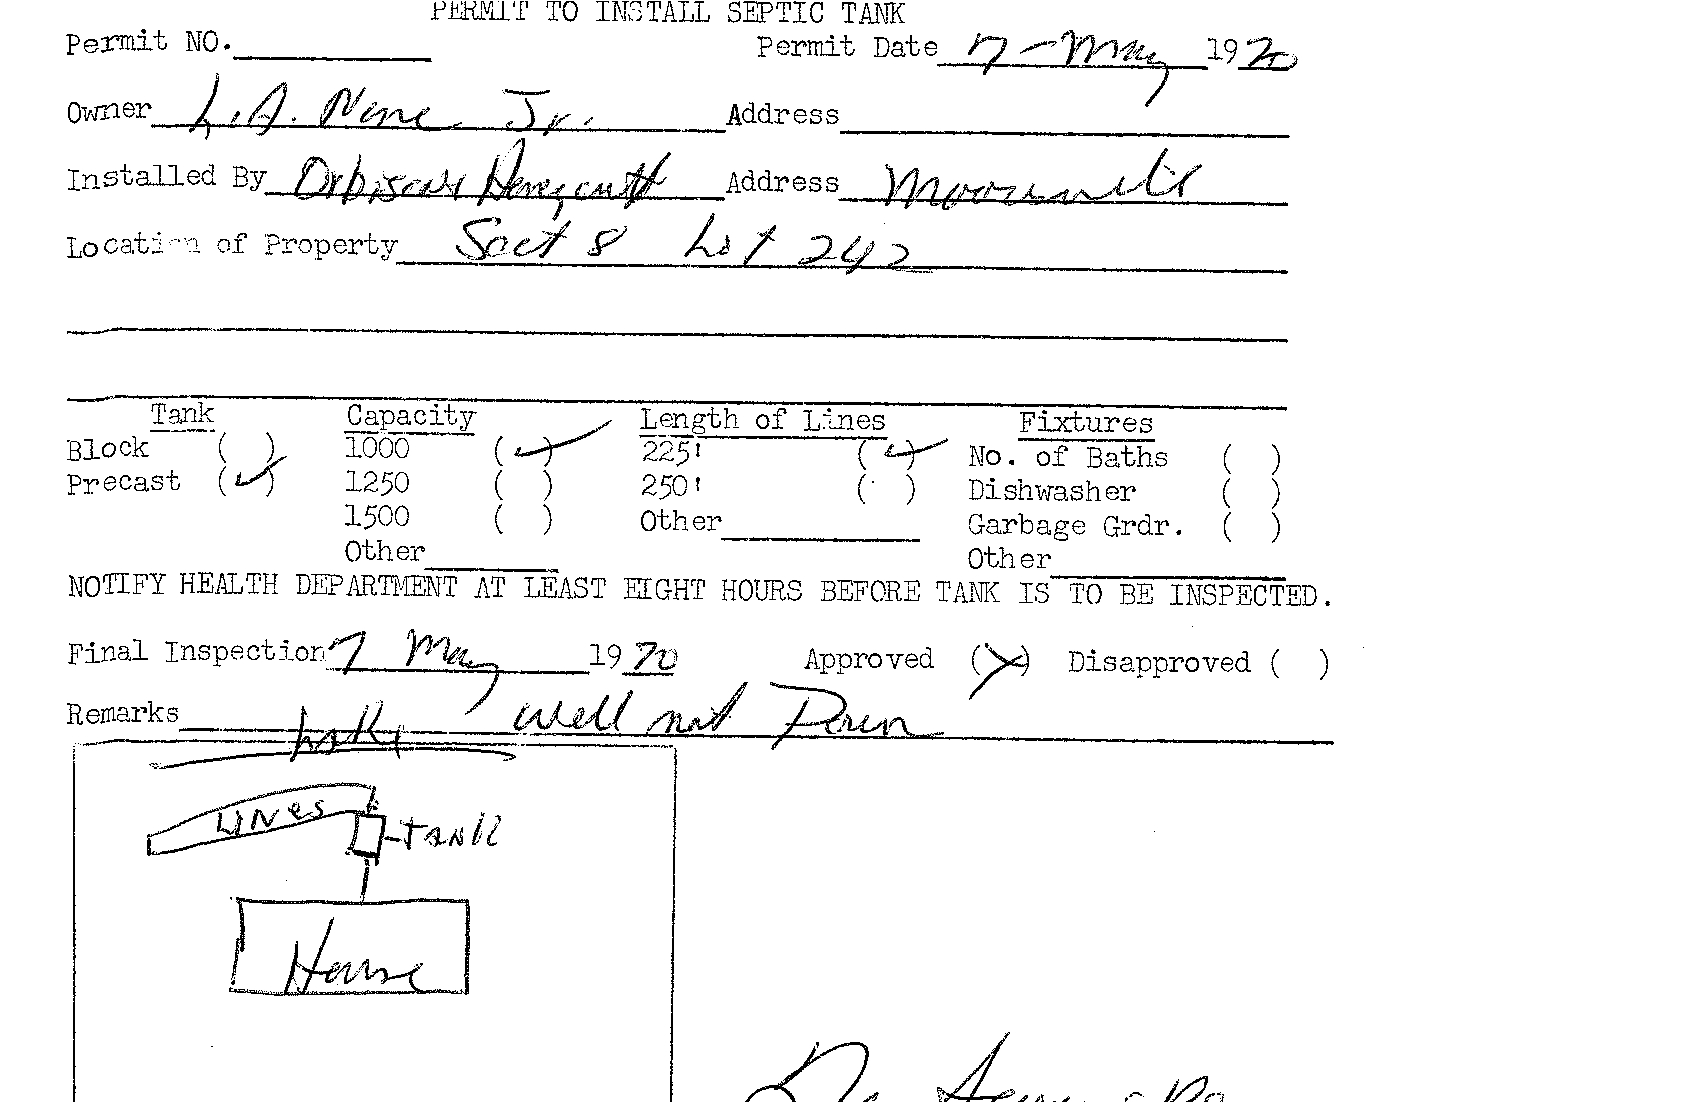 PERMIT TO INSTALL SEPTIC TANK
Permit NO. Permit Date 7-May 1970
Owner L.A. Jr. Address
Installed By Address
Location of Property Sect 8 Lot 242
Tank Capacity Length of Lines Fixtures
Block ( ) 1000 (✓) 225' (✓) No. of Baths ( )
Precast (✓) 1250 ( ) 250' ( ) Dishwasher ( )
1500 ( ) Other Garbage Grdr. ( )
Other Other
NOTIFY HEALTH DEPARTMENT AT LEAST EIGHT HOURS BEFORE TANK IS TO BE INSPECTED.
Final Inspection 7 May 1970 Approved (X) Disapproved ( )
Remarks well not
Lake
LINES
TANK
House